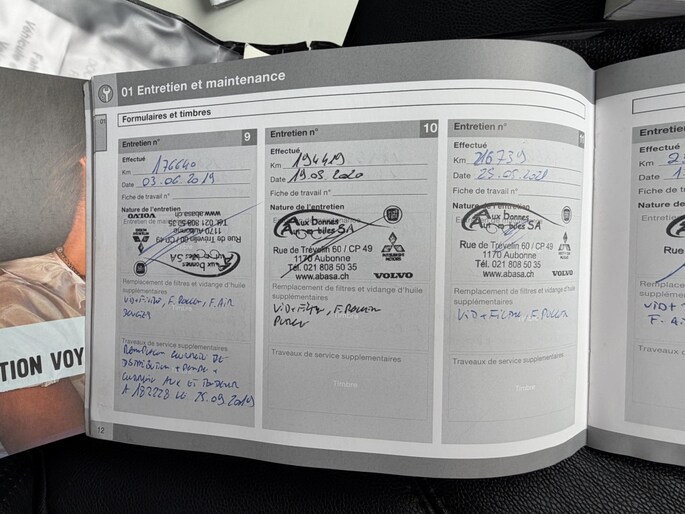 01 Entretien et maintenance
01
Formulaires et timbres
Entretien n° 9
Effectué
Km 176640
Date 03.06.2019
Fiche de travail n°
Nature de l'entretien
Aux Bonnes
Autos-mobiles SA
Rue de Trévelin 60 / CP 49
1170 Aubonne
Tél. 021 808 50 35
www.abasa.ch
VOLVO
Remplacement de filtres et vidange d'huile
supplémentaires
Vid + Filtre, F. Pollen, F. Air
Traveaux de service supplémentaires
courroie de
distribution + pompe +
courroie
à 182228 le 25.09.2019
12
Entretien n° 10
Effectué
Km 194419
Date 19.08.2020
Fiche de travail n°
Nature de l'entretien
Aux Bonnes
Rue de Trévelin 60 / CP 49
1170 Aubonne
Tél. 021 808 50 35
www.abasa.ch
MITSUBISHI
MOTORS
VOLVO
Remplacement de filtres et vidange d'huile
supplémentaires
Vid + Filtre, F. Pollen
Timbre
Traveaux de service supplémentaires
Timbre
Entretien n°
Effectué
Km 216739
Date 25.05.2021
Fiche de travail n°
Nature de l'entretien
Aux Bonnes
Rue de Trévelin 60 / CP 49
1170 Aubonne
Tél. 021 808 50 35
www.abasa.ch
VOLVO
Remplacement de filtres et vidange d'huile
supplémentaires
Vid + Filtre, F. Pollen
Traveaux de service supplémentaires
Timbre
Effectué
Km
Date
Fiche de travail
Nature de l'e
Remplacement
supplémentair
Traveaux de s
TION VOY